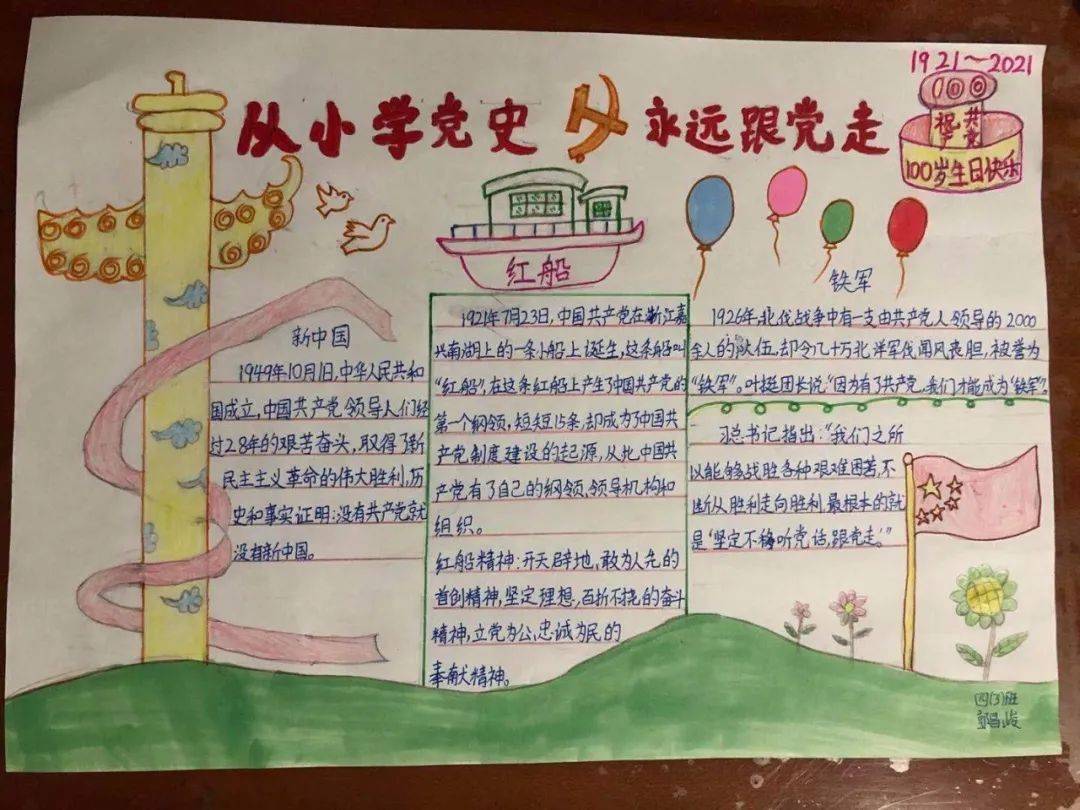 1921~2021
从小学党史 永远跟党走
100
祝共
产党
100岁生日快乐
红船
铁军
新中国
1949年10月1日,中华人民共和
国成立,中国共产党领导人们经
过28年的艰苦奋头,取得了新
民主主义革命的伟大胜利,历
史和事实证明:没有共产党就
没有新中国。
1921年7月23日,中国共产党在浙江嘉
兴南湖上的一条小船上诞生,这条船叫
“红船”,在这条红船上产生了中国共产党的
第一个纲领,短短15条,却成为了中国共
产党制度建设的起源,从此中国共
产党有了自己的纲领、领导机构和
组织。
红船精神:开天辟地,敢为人先的
首创精神,坚定理想,百折不挠的奋斗
精神,立党为公、忠诚为民的
奉献精神。
1926年,北伐战争中有一支由共产党人领导的2000
余人的队伍,却令几十万北洋军伐闻风丧胆,被誉为
“铁军”。叶挺团长说:“因为有了共产党,我们才能成为‘铁军’”。
习总书记指出:“我们之所
以能够战胜各种艰难困苦,不
断从胜利走向胜利,最根本的就
是‘坚定不移听党话,跟党走’”
四(3)班